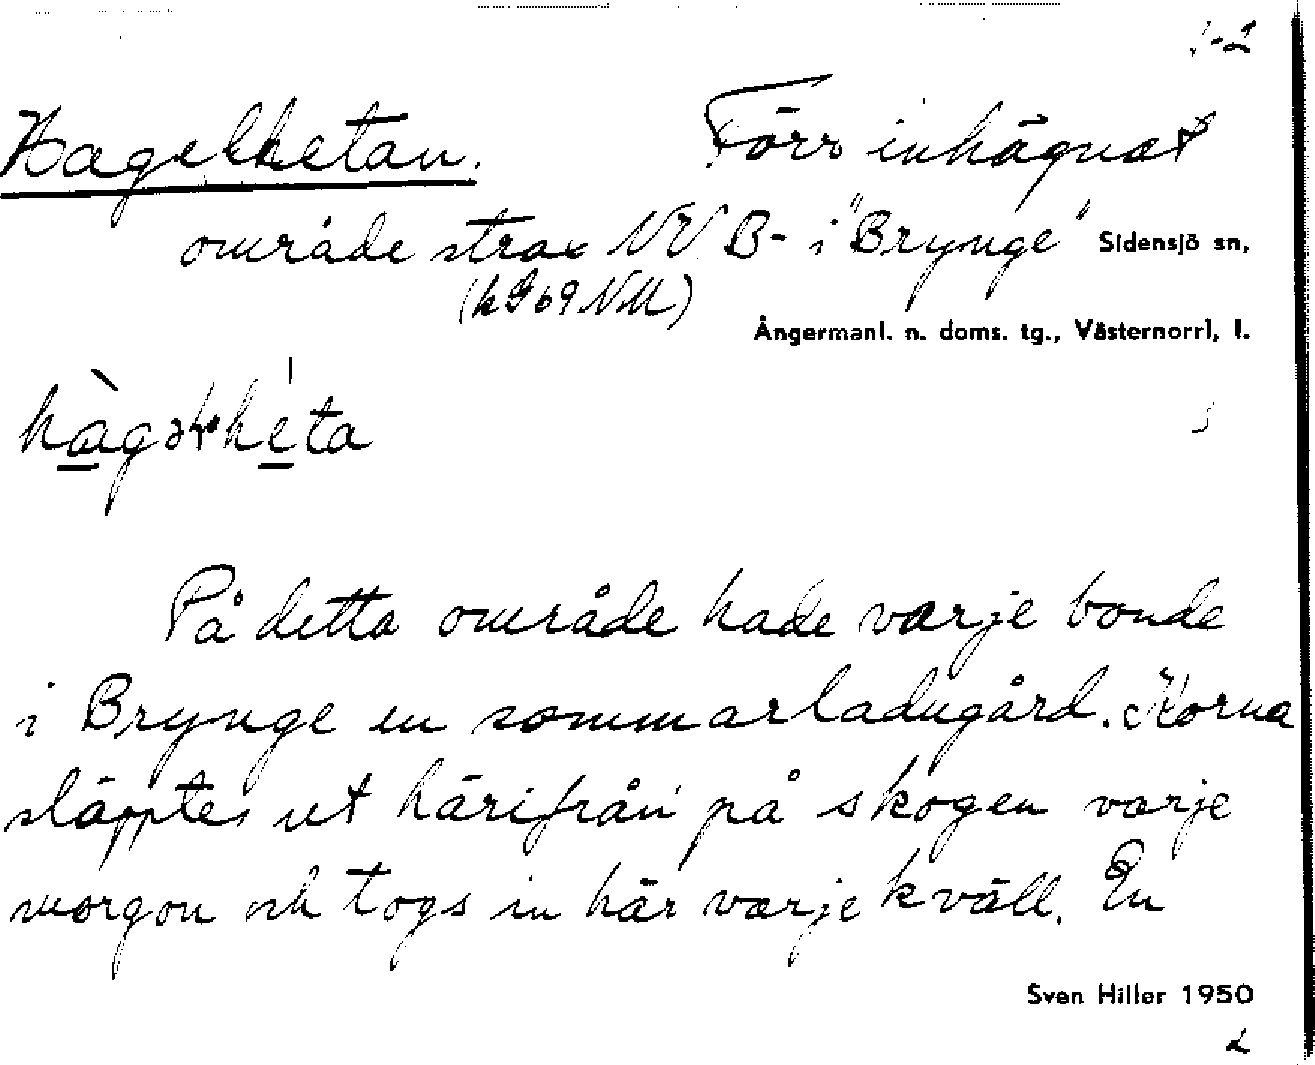 1-2
Hagelhetan. Förr inhägnat
område strax NV B- i "Brynge" Sidensjö sn,
(kG69NM)
Ångermanl. n. doms. tg., Västernorrl, l.
På detta område hade varje bonde
i Brynge en sommarladugård. Korna
släpptes ut härifrån på skogen varje
morgon och togs in här varje kväll. En
Sven Hiller 1950
2